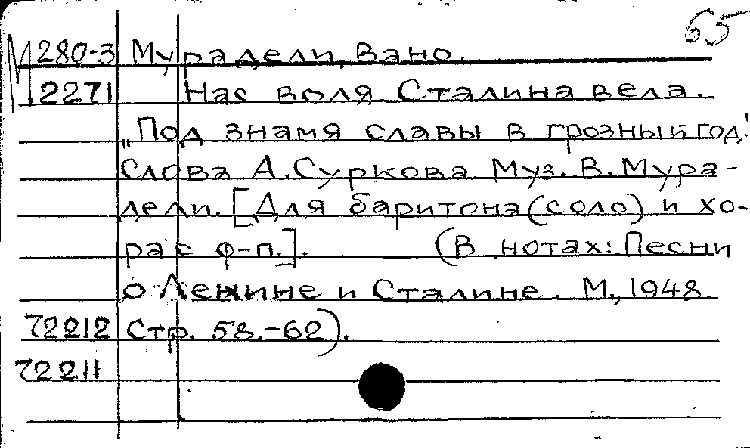 65
М 280-3 Мурадели, Вано.
12271 Нас воля Сталина вела.
„Под знамя славы в грозный год."
Слова А. Суркова. Муз. В. Мура-
дели. [Для баритона (соло) и хо-
ра с ф-п.]. (В нотах: Песни
о Ленине и Сталине. М., 1948.
72212 Стр. 58.-62).
72211